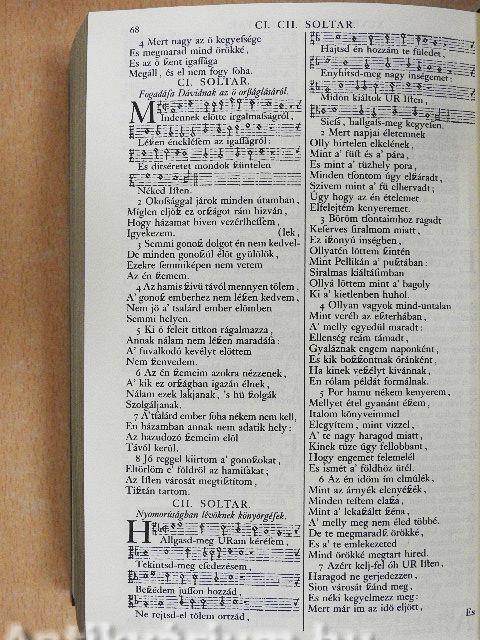 68
CI. CII. SOLTAR.
4 Mert nagy az ő kegyeſſége
Es megmarad mind örökké,
Es az ő ſzent igaſſága
Megáll, és el nem fogy ſoha.
CI. SOLTAR.
Fogadáſa Dávidnak az ő orſzáglásáról.
Mindennek előtte irgalmaſságról,
Léſzen énekléſem az igaſságról:
Es ditséretet mondok ſzüntelen
Néked Iſten.
2 Okoſsággal járok minden útamban,
Míglen eljőſz ez orſzágot rám hizván,
Hogy házamat híven vezérlheſſem,
Igyekezem.
(lek,
3 Semmi gonoſz dolgot én nem kedvel-
De minden gonoſzúl élőt gyűlölök,
Ezekre ſemmiképen nem vetem
Az én ſzemem.
4 Az hamis ſzívű távol mennyen tőlem,
A' gonoſz emberhez nem léſzen kedvem,
Nem jő a' tsalárd ember előmben
Semmi helyen.
5 Ki ő feleit titkon rágalmazza,
Annak nálam nem léſzen maradáſa:
A' fuvalkodó kevélyt előttem
Nem ſzenvedem.
6 Az én ſzemeim azokra nézzenek,
A' kik ez orſzágban igazán élnek,
Nálam ezek lakjanak, 's hű ſzolgák
Szolgáljanak.
7 A' tsalárd ember ſoha nékem nem kell,
En házamban annak nem adatik hely:
Az hazudozó ſzemeim elől
Távol kerűl.
8 Jó reggel kiirtom a' gonoſzokat,
Eltörlöm e' földről az hamiſakat;
Az Iſten városát megtiſztítom,
Tiſztán tartom.
CII. SOLTAR.
Nyomorúſágban lévőknek könyörgéſek.
Hallgasd-meg URam kéréſem,
Tekintsd-meg eſedezésem,
Beſzédem juſſon hozzád,
Ne rejtsd-el tőlem ortzád,
Hajtsd én hozzám te füledet,
Enyhítsd-meg nagy ínségemet:
Midőn kiáltok UR Iſten,
Sieſs, hallgaſs-meg kegyeſen.
2 Mert napjai életemnek
Olly hirtelen elkelének,
Mint a' füſt és a' pára,
Es mint a' tűzhely pora,
Minden tſontom úgy elſzáradt,
Szívem mint a' fű elhervadt;
Úgy hogy az én ételemet
Elfelejtém kenyeremet.
3 Bőröm tſontaimhoz ragadt
Keſerves ſiralmom miatt,
Ez iſzonyú inségben,
Ollyatén lőttem ſzintén
Mint Pellikán a' puſztában:
Siralmas kiáltáſimban
Ollyá lőttem mint a' bagoly
Ki a' kietlenben huhol.
4 Ollyan vagyok mind-untalan
Mint veréb az eſzterhában,
A' melly egyedűl maradt:
Ellenség reám támadt,
Gyaláznak engem naponként,
Es kik boſzſzontnak óránként,
Ha kinek veſzélyt kivánnak,
En rólam példát formálnak.
5 Por hamu nékem kenyerem,
Mellyet étel gyanánt éſzem,
Italom könyveimmel
Elegyítem, mint vizzel,
A' te nagy haragod miatt,
Kinek tüze úgy fellobbant,
Hogy engemet felemelél
Es ismét a' földhöz ütél.
6 Az én időm im elmúlék,
Mint az árnyék elenyéſzék,
Minden teſtem elaſza,
Mint a' lekaſzált ſzéna,
A' melly meg nem éled többé.
De te megmaradſz örökké,
Es a' te emlekezeted
Mind örökké megtart hired.
7 Azért kelj-fel óh UR Iſten,
Haragod ne gerjedezzen,
Sion városát ſzánd meg,
Es néki kegyelmezz meg:
Mert már im az idő eljött,
Es